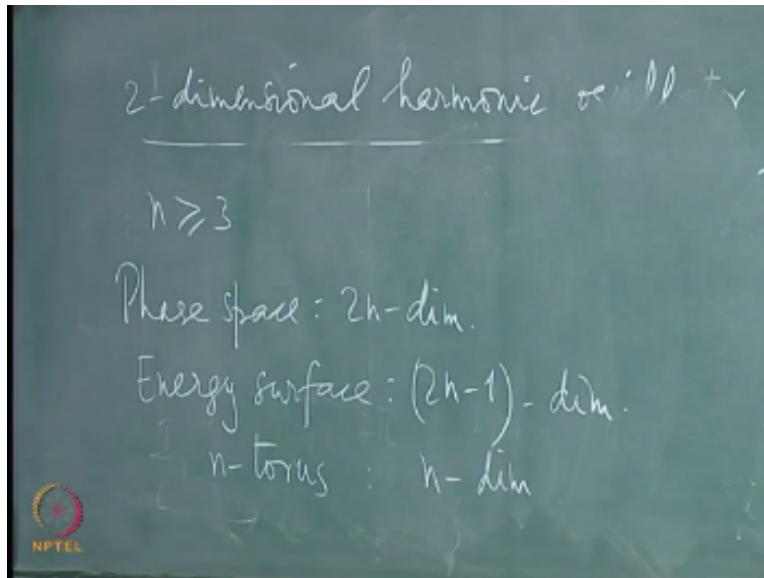 2-dimensional harmonic
n ⩾ 3
Phase space : 2n-dim.
Energy surface : (2n-1) - dim.
n-torus : n-dim
NPTEL